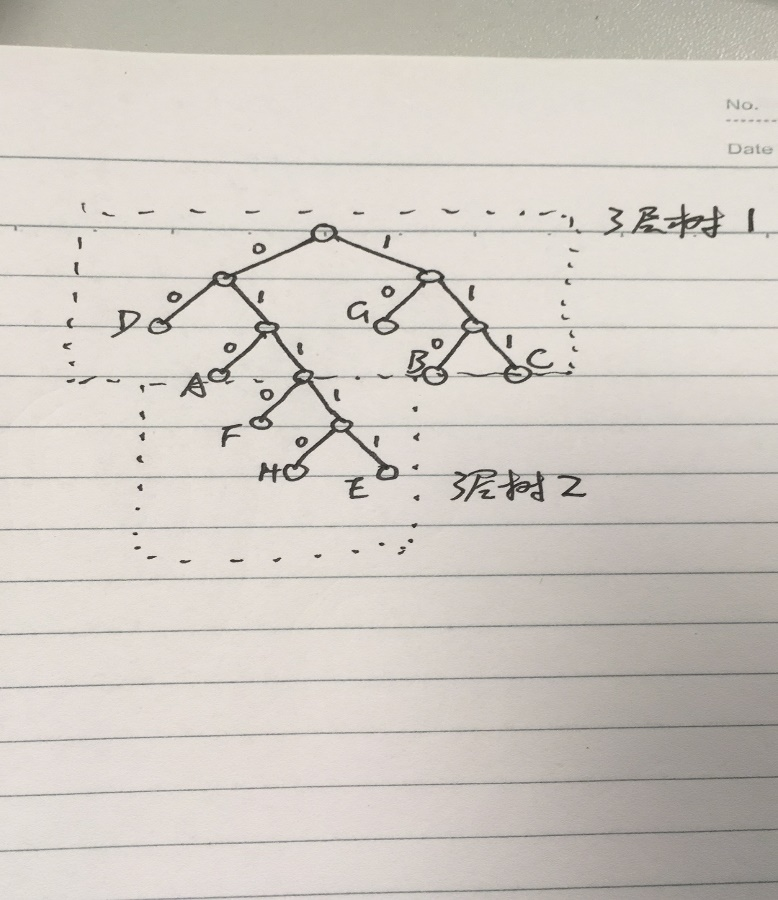 No.
Date
3层树1
0 1
0 1 0 1
D G
0 1 0 1
A B C
0 1
F
0 1
H E
3层树2